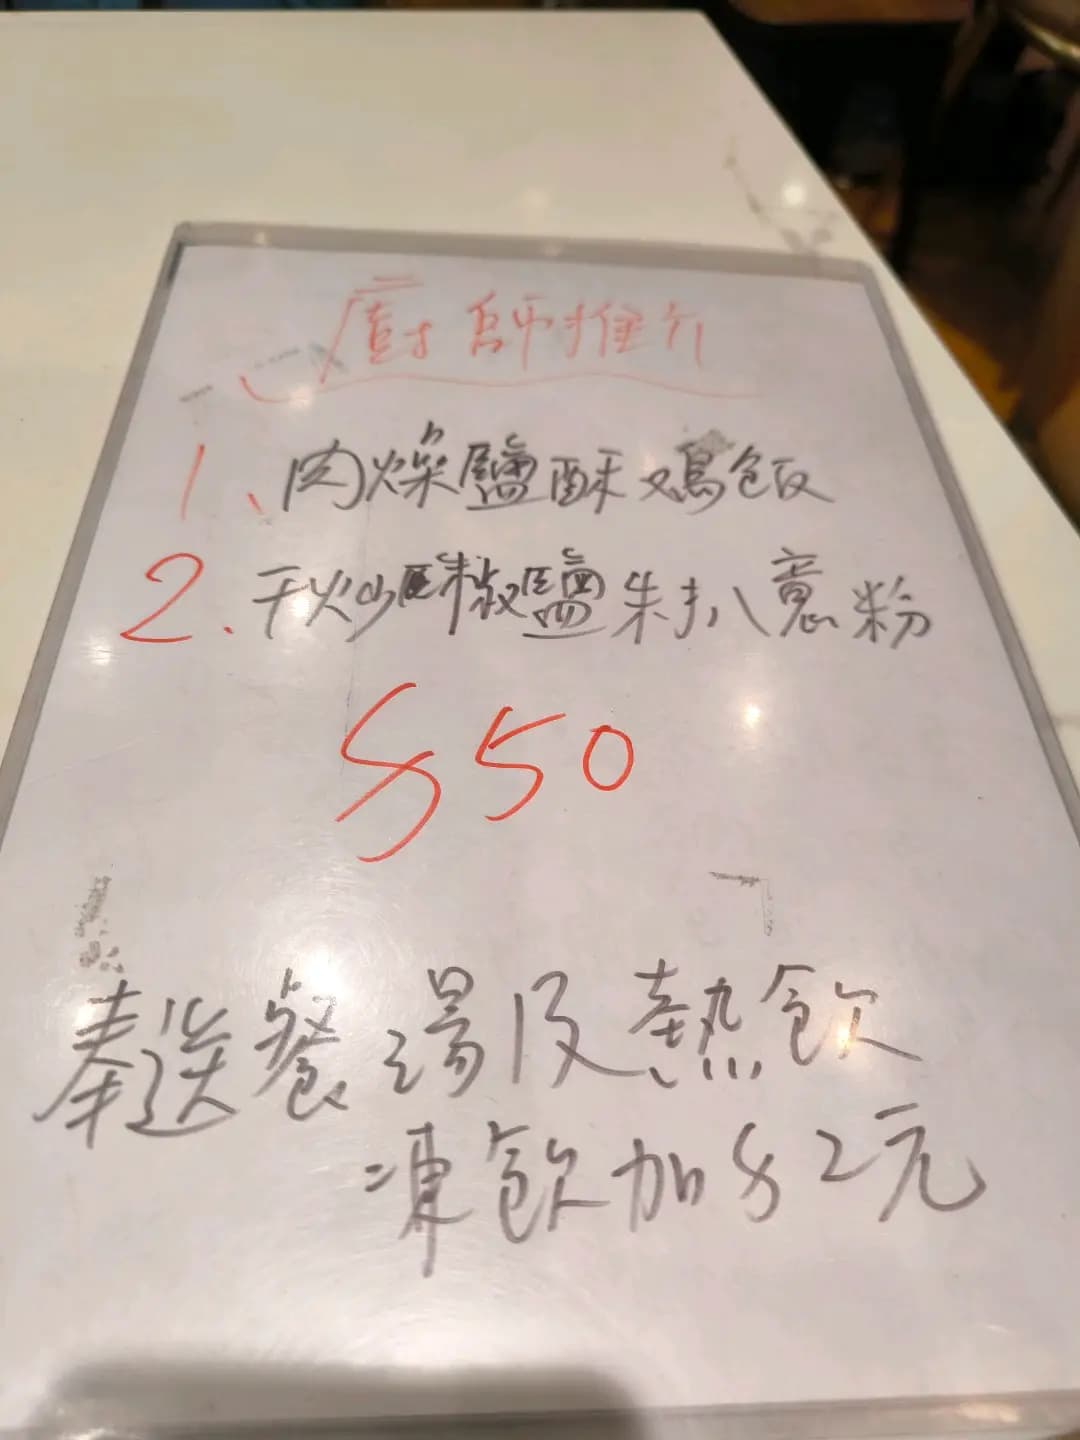 廚師推介
1、肉燥鹽酥雞飯
2.干炒椒鹽朱扒意粉
$50
奉送餐湯及熱飲
凍飲加$2元